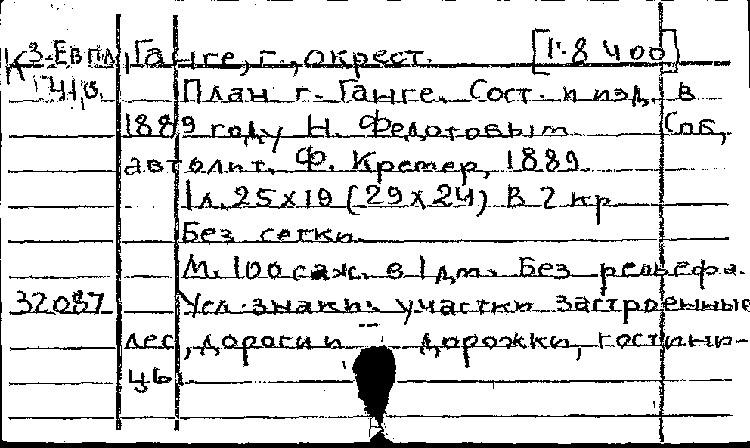 К 3-ЕвПл Ганге, г., окрест. [1:8 400]
План г. Ганге. Сост. и изд. в
1889 году Н. Федотовым. Спб,
автолит. Ф. Кремер, 1889.
1 л. 25х19 (29х24) В 2 кр
Без сетки.
М. 100 саж. в 1 дм. Без рельефа.
32087 Усл. знаки: участки застроенные
лес, дороги и дорожки, гостини-
цы.